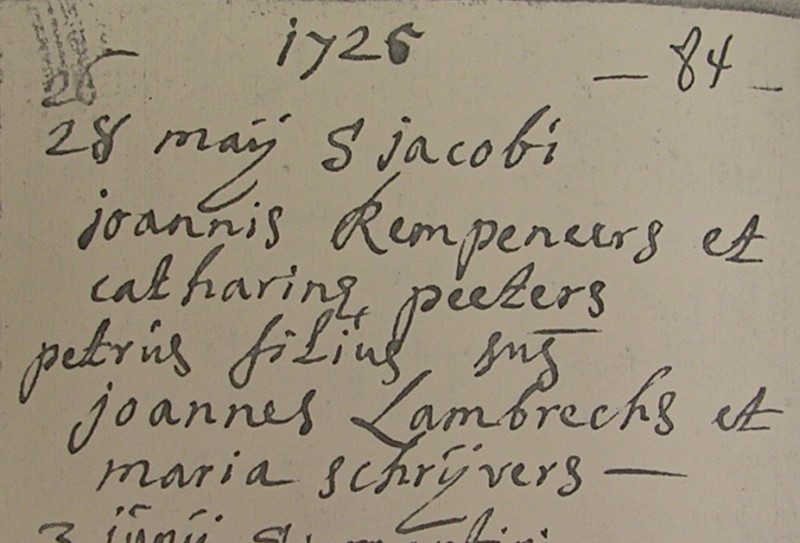 1726 — 84 —
28 maÿ S jacobi
joannis Kempeneers et
catharinę peeters
petrus filius sus̄
joannes Lambrechs et
maria schrijvers —
3 junij S: